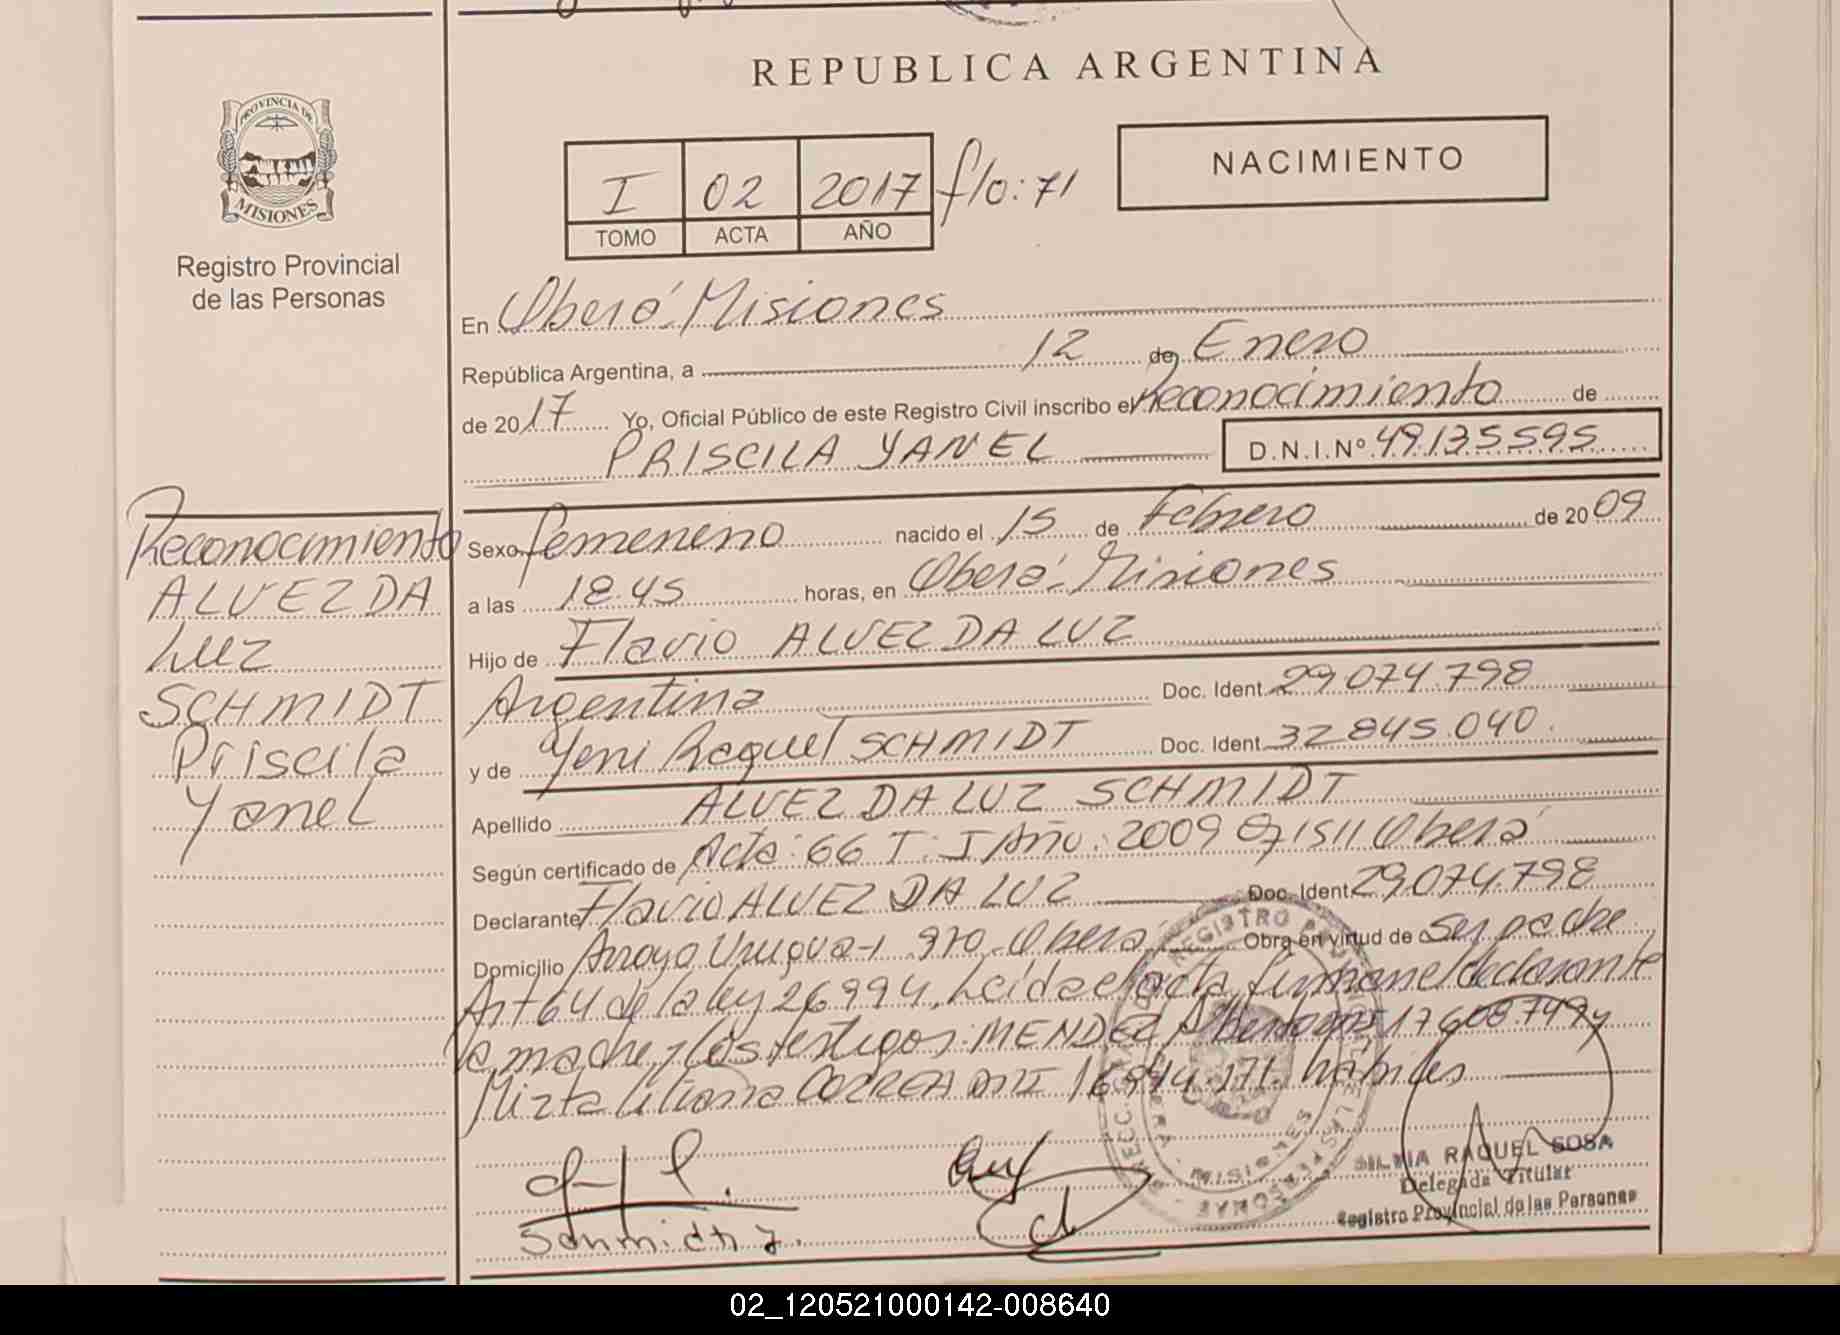 REPUBLICA ARGENTINA
PROVINCIA DE
MISIONES
Registro Provincial
de las Personas
I 02 2017 f/o: 71
TOMO ACTA AÑO
NACIMIENTO
En Oberá Misiones
República Argentina, a 12 de Enero
de 2017 Yo, Oficial Público de este Registro Civil inscribo el Reconocimiento de
PRISCILA YANEL D.N.I.Nº 49.135.595
Reconocimiento
ALVEZ DA
Luz
SCHMIDT
Priscila
Yanel
Sexo femenino nacido el 15 de Febrero de 2009
a las 18.45 horas, en Oberá-Misiones
Hijo de Flavio ALVEZ DA LUZ
Argentina Doc. Ident. 29.074.798
y de Yeni Raquel SCHMIDT Doc. Ident. 32.845.040.
Apellido ALVEZ DA LUZ SCHMIDT
Según certificado de Acta: 66 T: I Año: 2009 Of 1511 Oberá
Declarante Flavio ALVEZ DA LUZ Doc. Ident. 29.074.798
Domicilio Arroyo Urugua-i 970 Oberá Obra en virtud de ser padre
Art 64 de la ley 26994. Leída el acta, firman el declarante
la madre y los testigos: MENDEZ, Alberto DNI 17.608.749 y
Mirta Liliana CORREA DNI 16.944.171. hábiles
Schmidt Y.
SILVIA RAQUEL SOSA
Delegada Titular
Registro Provincial de las Personas
02_120521000142-008640